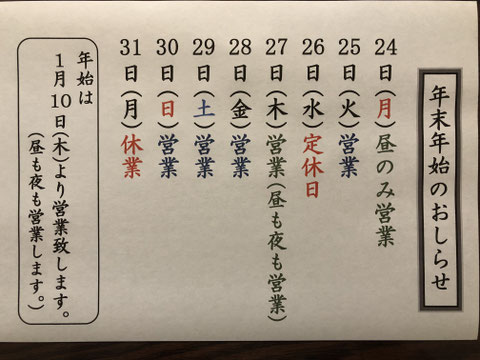 年末年始のおしらせ
24日(月)昼のみ営業
25日(火)営業
26日(水)定休日
27日(木)営業(昼も夜も営業)
28日(金)営業
29日(土)営業
30日(日)営業
31日(月)休業
年始は
1月10日(木)より営業致します。
(昼も夜も営業します。)